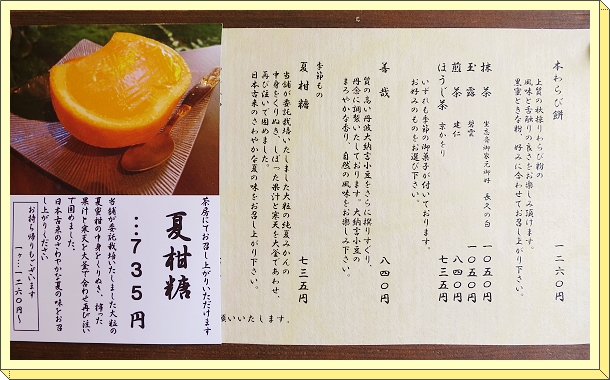 本わらび餅　一二六〇円
上質の秋採りわらび粉の
風味と舌触りの良さをお楽しみ頂けます。
黒蜜ときな粉、好みに合わせてお召し上がり下さい。
抹茶　坐忘斎御家元御好　長久の白　一〇五〇円
玉露　碧雲　一〇五〇円
煎茶　建仁　八四〇円
ほうじ茶　京かをり　七三五円
いずれも季節の御菓子が付いております。
お好みのものをお選び下さい。
善哉　八四〇円
質の高い丹波大納言小豆をさらに撰りすぐり、
丹念に調製いたしております。大納言小豆の
まろやかな香り、自然の風味をお楽しみ下さい。
季節もの
夏柑糖　七三五円
当舗が委託栽培いたしました大粒の純夏みかんの
中身をくりぬき、しぼった果汁と寒天を大釜であわせ、
再び注いで固めました。
日本古来のさわやかな夏の味をお召し上がり下さい。
願いいたします。
茶房にてお召し上がりいただけます
夏柑糖
…735円
当舗が委託栽培いたしました大粒の
夏蜜柑の中身をくりぬき、搾った
果汁と寒天を大釜で合わせ再び注い
で固めました。
日本古来のさわやかな夏の味をお召
し上がりください
お持ち帰りもございます
一ヶ…一二六〇円～